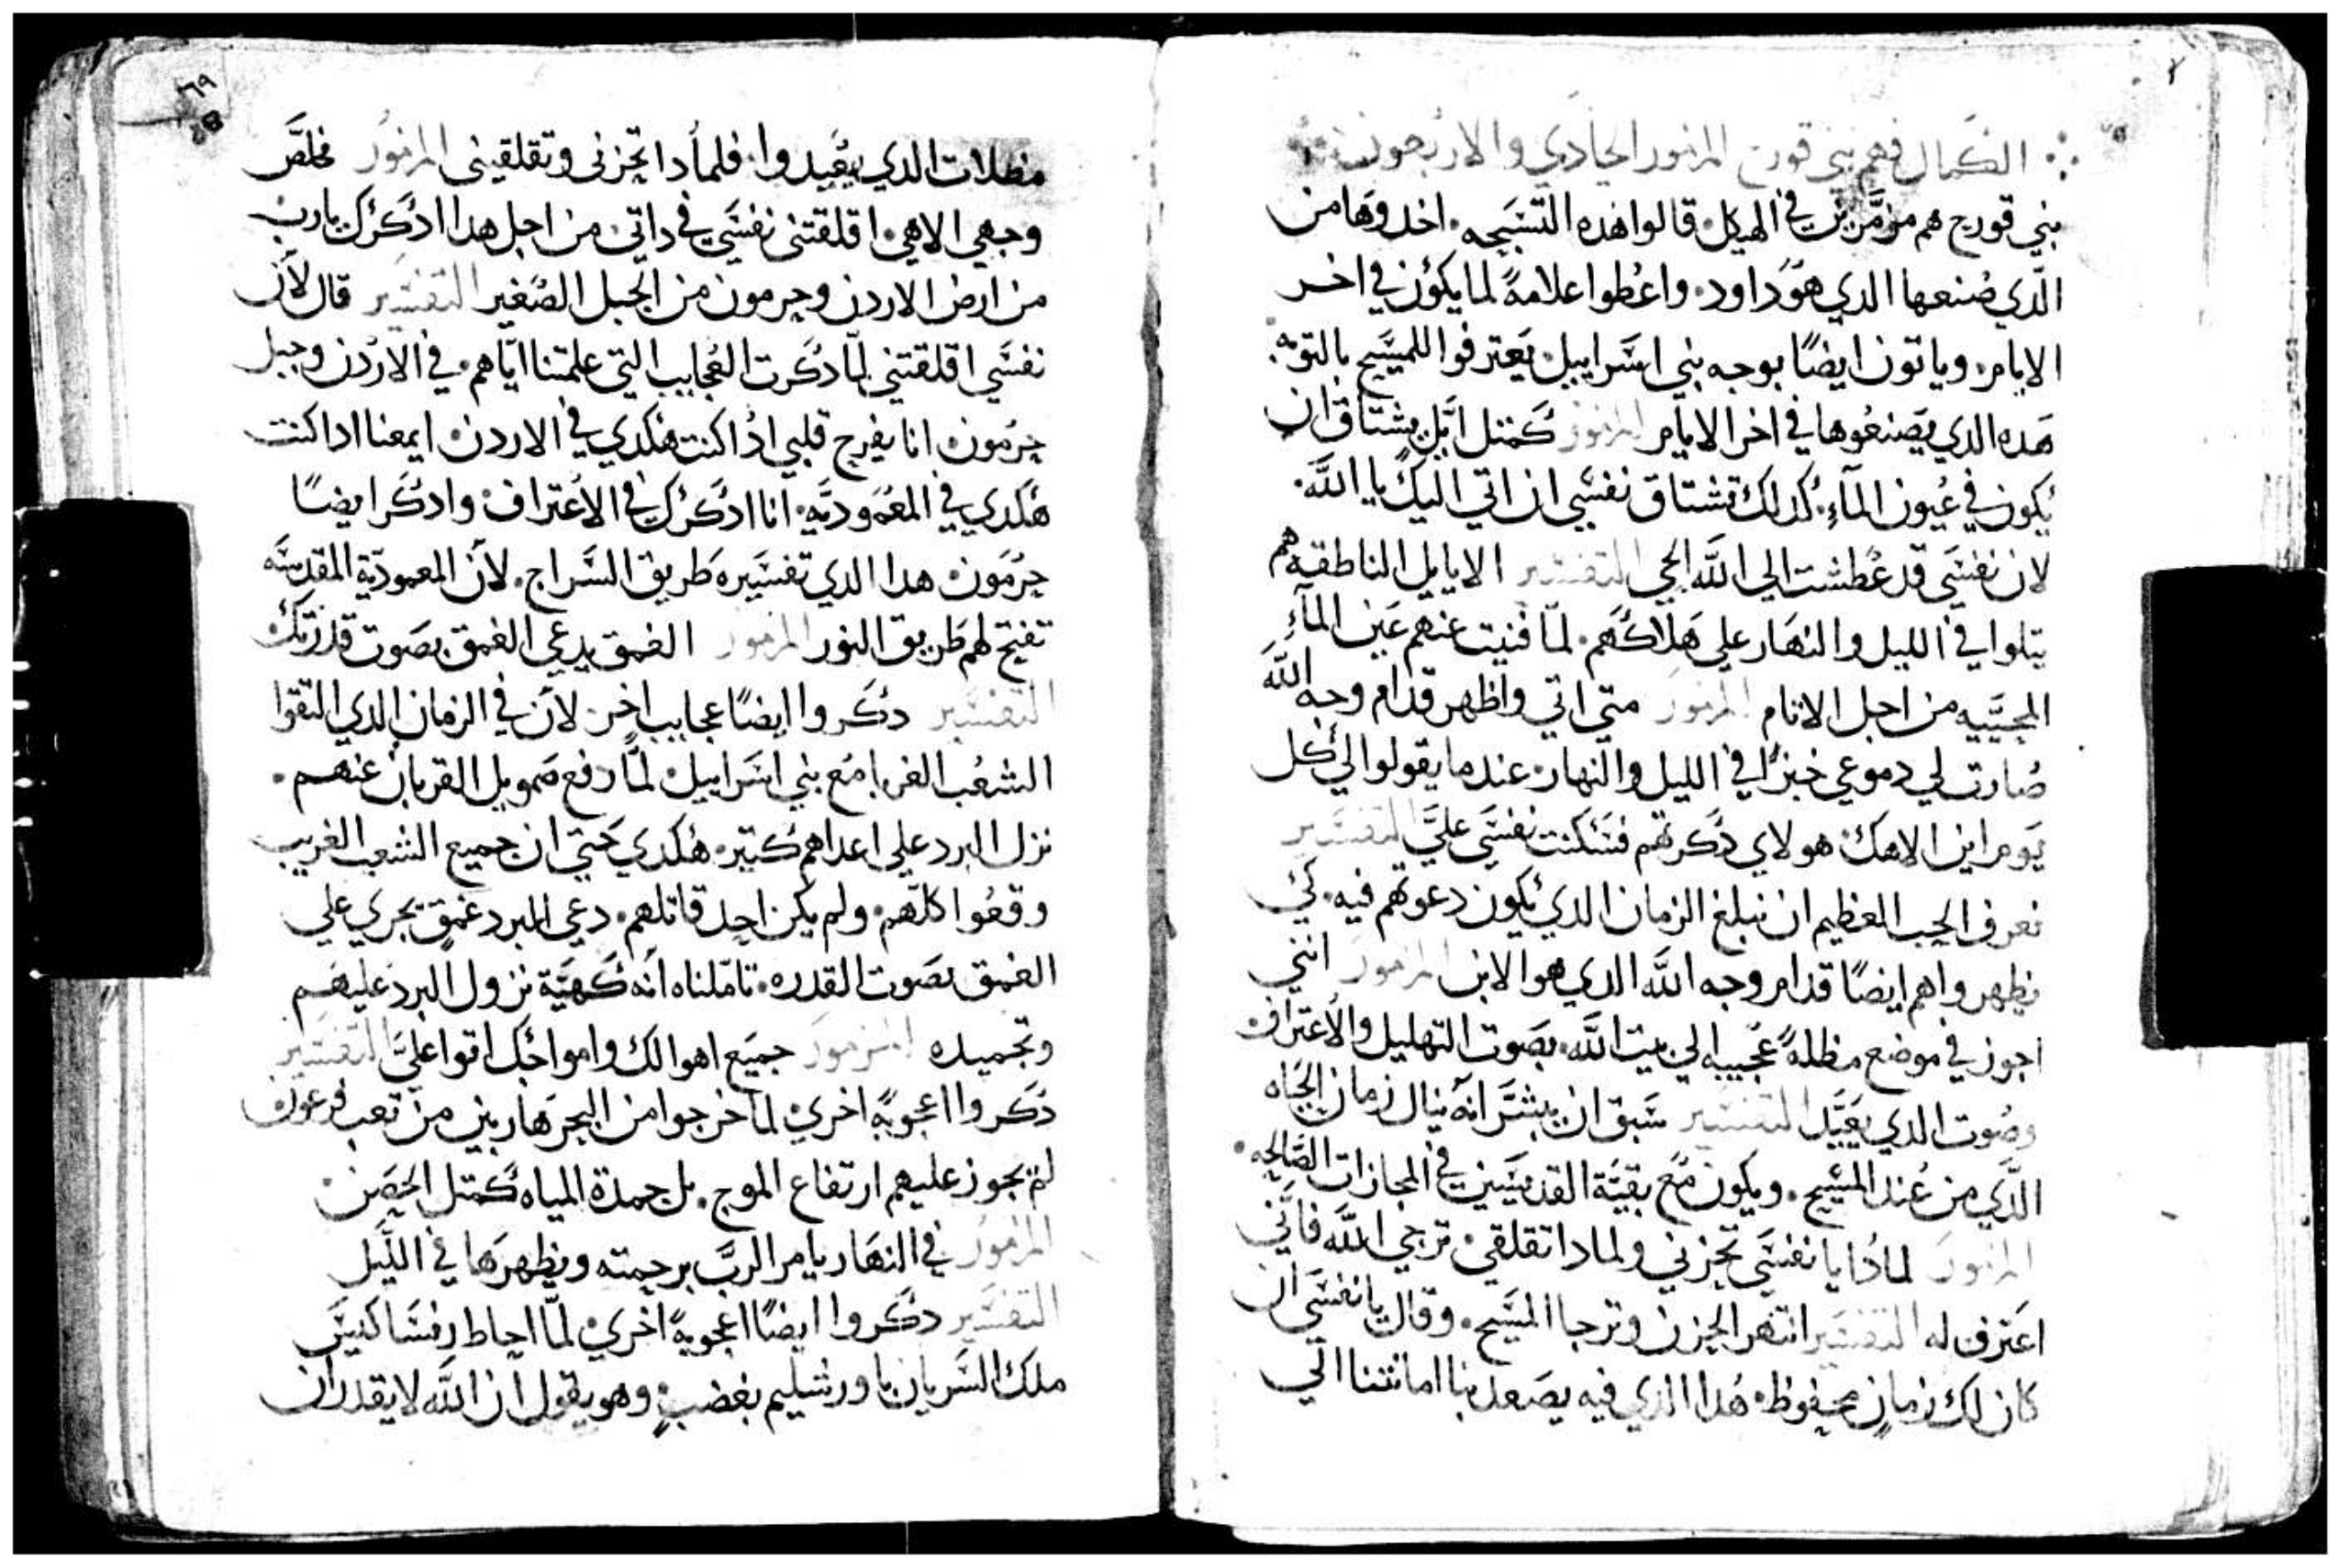 الكمال فهم بني قورح المزمور الحادي والاربعون
بني قورح هم مزمرين في الهيكل. قالوا هده التسبحه. اخدوها من
الدي صنعها الدي هو داود. واعطوا علامةً لما يكون في اخر
الايام. وياتون ايضًا بوجه بني اسراييل يعترفوا للمسيح بالتوبه.
هده الدي يصنعوها في اخر الايام المزمور كمتل ايّل يشتاق ان
يكون في عيون المآء. كدلك تشتاق نفسي ان اتي اليك يا الله.
لان نفسي قد عطشت الي الله الحي التفسير الايايل الناطقه هم
يتلوا في الليل والنهار علي هلاكهم. لمّا فنيت عنهم عين المآء
المحييه من اجل الانام المزمور متي اتي واظهر قدام وجه الله
صارت لي دموعي خبزًا في الليل والنهار. عند ما يقولوا لي كل
يوم اين الاهك. هولاي دكرتهم فسكنت نفسي عليَّ التفسير
نعرف الحب العظيم ان نبلغ الزمان الدي يكون دعوتهم فيه. كي
يظهروا هم ايضًا قدام وجه الله الدي هو الابن المزمور انني
اجوز في موضع مظلةً عجيبه الي بيت الله. بصوت التهليل والاعتراف
وصوت الدي يعيّد التفسير سبق ان يبشر انه ينال زمان الحياه
الدي من عند المسيح. ويكون مع بقيّة القديسين في المجازات الصالحه.
المزمور لمادا يا نفسي تحزني ولمادا تقلقي. ترجي الله فاني
اعترف له التفسير انتهر الحزن وترجا المسيح. وقال يا نفسي ان
كان لك زمانٍ محفوظ. هدا الدي فيه يصعد بنا امانتنا الي
٦٩
مظلات الدي يعيدوا. فلمادا تحزني وتقلقيني المزمور مخلص
وجهي الاهي. اقلقتني نفسي في داتي من اجل هدا ادكرك يا رب
من ارض الاردن وحرمون من الجبل الصغير التفسير قال لان
نفسي اقلقتني لمّا دكرت العجايب التي علمتنا اياهم. في الاردن وجبل
حرمون. انا يفرح قلبي ادا كنت هكدي في الاردن. ايمعنا ادا كنت
هكدي في المعموديّه. انا ادكرك في الاعتراف. وادكر ايضًا
حرمون. هدا الدي تفسيره طريق السراج. لان المعموديّة المقدسه
تفتح لهم طريق النور المزمور الغمق يدعي الغمق بصوت قدرتك
التفسير دكروا ايضًا عجايب اخر. لان في الزمان الدي التقوا
الشعب الغربا مع بني اسراييل. لمّا رفع صمويل القربان عنهم.
نزل البرد علي اعداهم كتير. هكدي حتي ان جميع الشعب الغريب
وقعوا كلّهم. ولم يكن احد قاتلهم. دعي البرد غمقٍ يجري علي
الغمق بصوت القدره. تاملناه انه كهيّة نزول البرد عليهم
وتجميده المزمور جميع اهوالك وامواجك اتوا عليَّ التفسير
دكروا اعجوبةً اخري. لما خرجوا من البحر هاربين من تعب فرعون
لم يجوز عليهم ارتفاع الموج. بل جمدة المياه كمتل الحصن
المزمور في النهار يامر الربّ برحمته ويظهرها في الليل
التفسير دكروا ايضًا اعجوبةً اخري. لمّا احاط رفساكيس
ملك السريان باورشليم بغضبٍ. وهو يقول ان الله لا يقدر ان